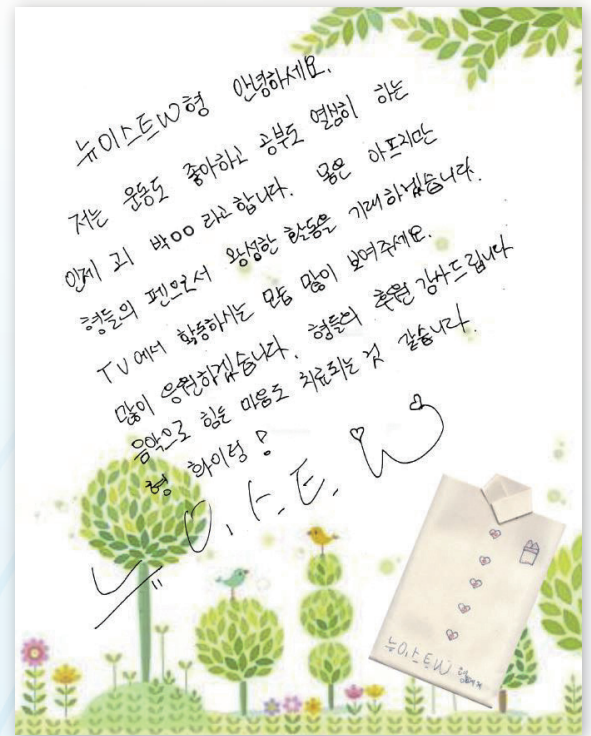 뉴이스트W형 안녕하세요.
저는 운동도 좋아하고 공부도 열심히 하는
이제 고1 박OO 라고합니다. 몸은 아프지만
형들의 펜으로서 왕성한 활동을 기대하겠습니다.
TV에서 활동하시는 모습 많이 보여주세요.
많이 응원하겠습니다. 형들의 후원 감사드립니다
음악으로 힘든 마음도 치료되는 것 같습니다.
형 화이팅!
뉴.이.스.트.W
뉴이스트W